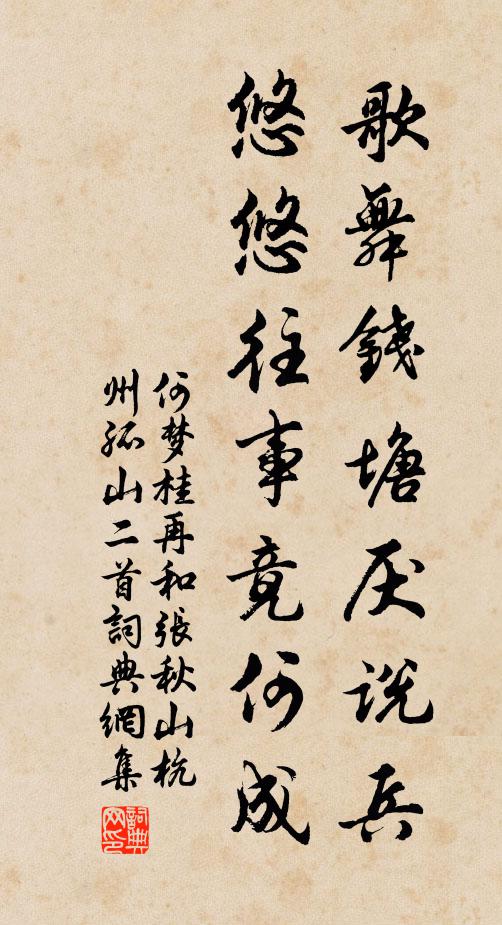 歌舞錢塘厌说兵
悠悠往事竟何成
何梦桂再和張秋山杭
州孤山二首詞典網集
詞典
网印